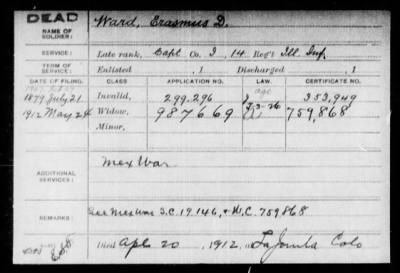 DEAD
NAME OF SOLDIER:
Ward, Erasmus D.
SERVICE:
Late rank, Capt Co. I, 14 Reg't Ill Inf.
TERM OF SERVICE:
Enlisted , 1 Discharged , 1
DATE OF FILING. CLASS APPLICATION NO. LAW. CERTIFICATE NO.
1879 July 21 Invalid, 299,296 353,949
1912 May 24 Widow, 987669 759,868
Minor,
ADDITIONAL SERVICES:
Mex War
REMARKS:
See Mex War S.C. 19.146, & W.C. 759868
Died Apl 20, 1912, La Junta Colo